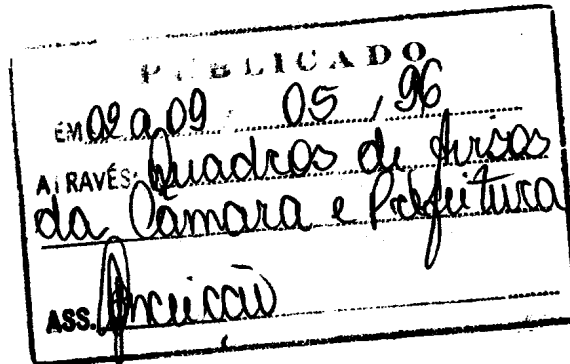 PUBLICADO
EM 02 a 09 05 / 96
ATRAVÉS: Quadros de Avisos
da Câmara e Prefeitura
ASS.